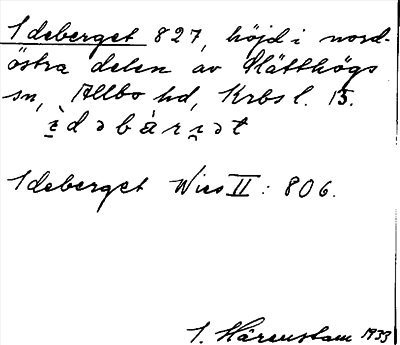 Ideberget 827, höjd i nord-
östra delen av Slätthögs
sn, Allbo hd, Krbs l. 15.
ìdəbàrɪət
Ideberget Wies II: 806.
I. Härenstam 1933